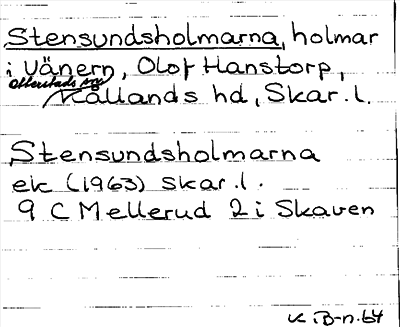 Stensundsholmarna, holmar
i Vänern, Olof Hanstorp,
Otterstads sn
Kållands hd, Skar. l.
Stensundsholmarna
ek (1963) Skar. l.
9 C Mellerud 2 i Skaven
K. B-n. 64